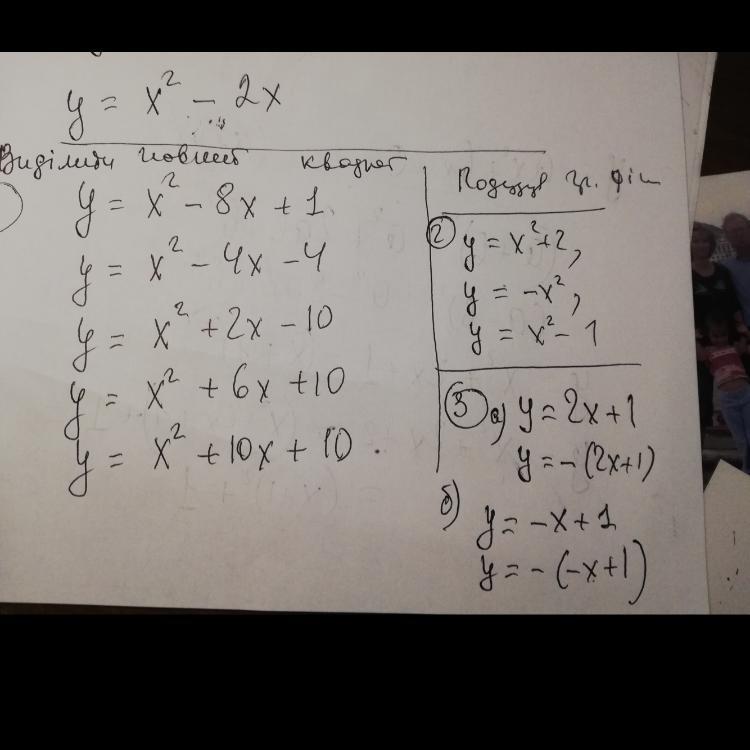 y = x² - 2x
Виділити повний квадрат
y = x² - 8x + 1
y = x² - 4x - 4
y = x² + 2x - 10
y = x² + 6x + 10
y = x² + 10x + 10.
② y = x² + 2,
y = -x²,
y = x² - 1
③ а) y = 2x + 1
y = -(2x+1)
б) y = -x + 1
y = -(-x+1)